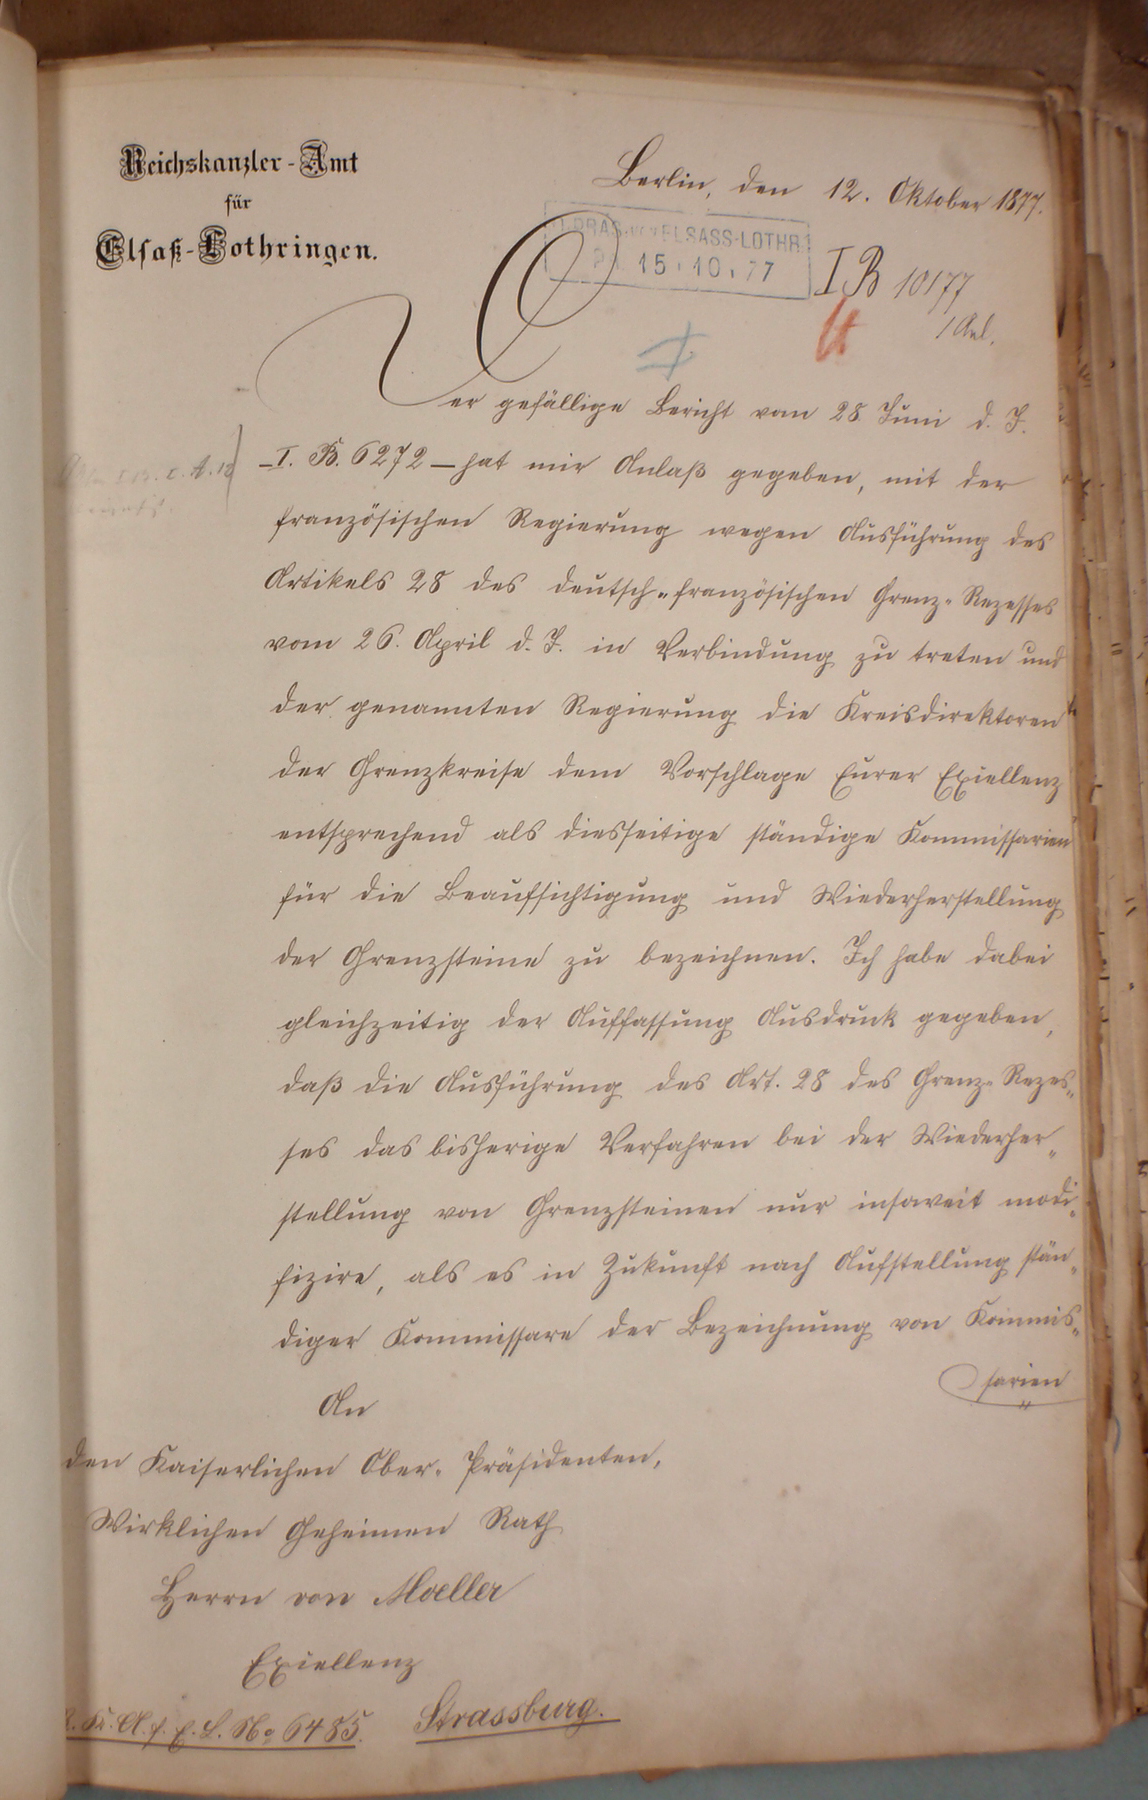 Reichskanzler-Amt
für
Elsaß-Lothringen.
Berlin, den 12. Oktober 1877.
ELSASS-LOTHR
15.10.77
I B 10177
1 Anl.
Der gefällige Bericht vom 28. Juni d. J.
— I. B. 6272 — hat mir Anlaß gegeben, mit der
französischen Regierung wegen Ausführung des
Artikels 28 des deutsch-französischen Grenz-Rezesses
vom 26. April d. J. in Verbindung zu treten und
der genannten Regierung die Kreisdirektoren
der Grenzkreise dem Vorschlage Eurer Exzellenz
entsprechend als diesseitige ständige Kommissarien
für die Beaufsichtigung und Wiederherstellung
der Grenzsteine zu bezeichnen. Ich habe dabei
gleichzeitig der Auffassung Ausdruck gegeben,
daß die Ausführung des Art. 28 des Grenz-Rezes-
ses das bisherige Verfahren bei der Wiederher-
stellung von Grenzsteinen nur insoweit modi-
fizire, als es in Zukunft nach Aufstellung stän-
diger Kommissare der Bezeichnung von Kommis-
sarien
An
den Kaiserlichen Ober-Präsidenten,
Wirklichen Geheimen Rath
Herrn von Moeller
Exzellenz
K. A. f. E. L. No 6485. Strassburg.